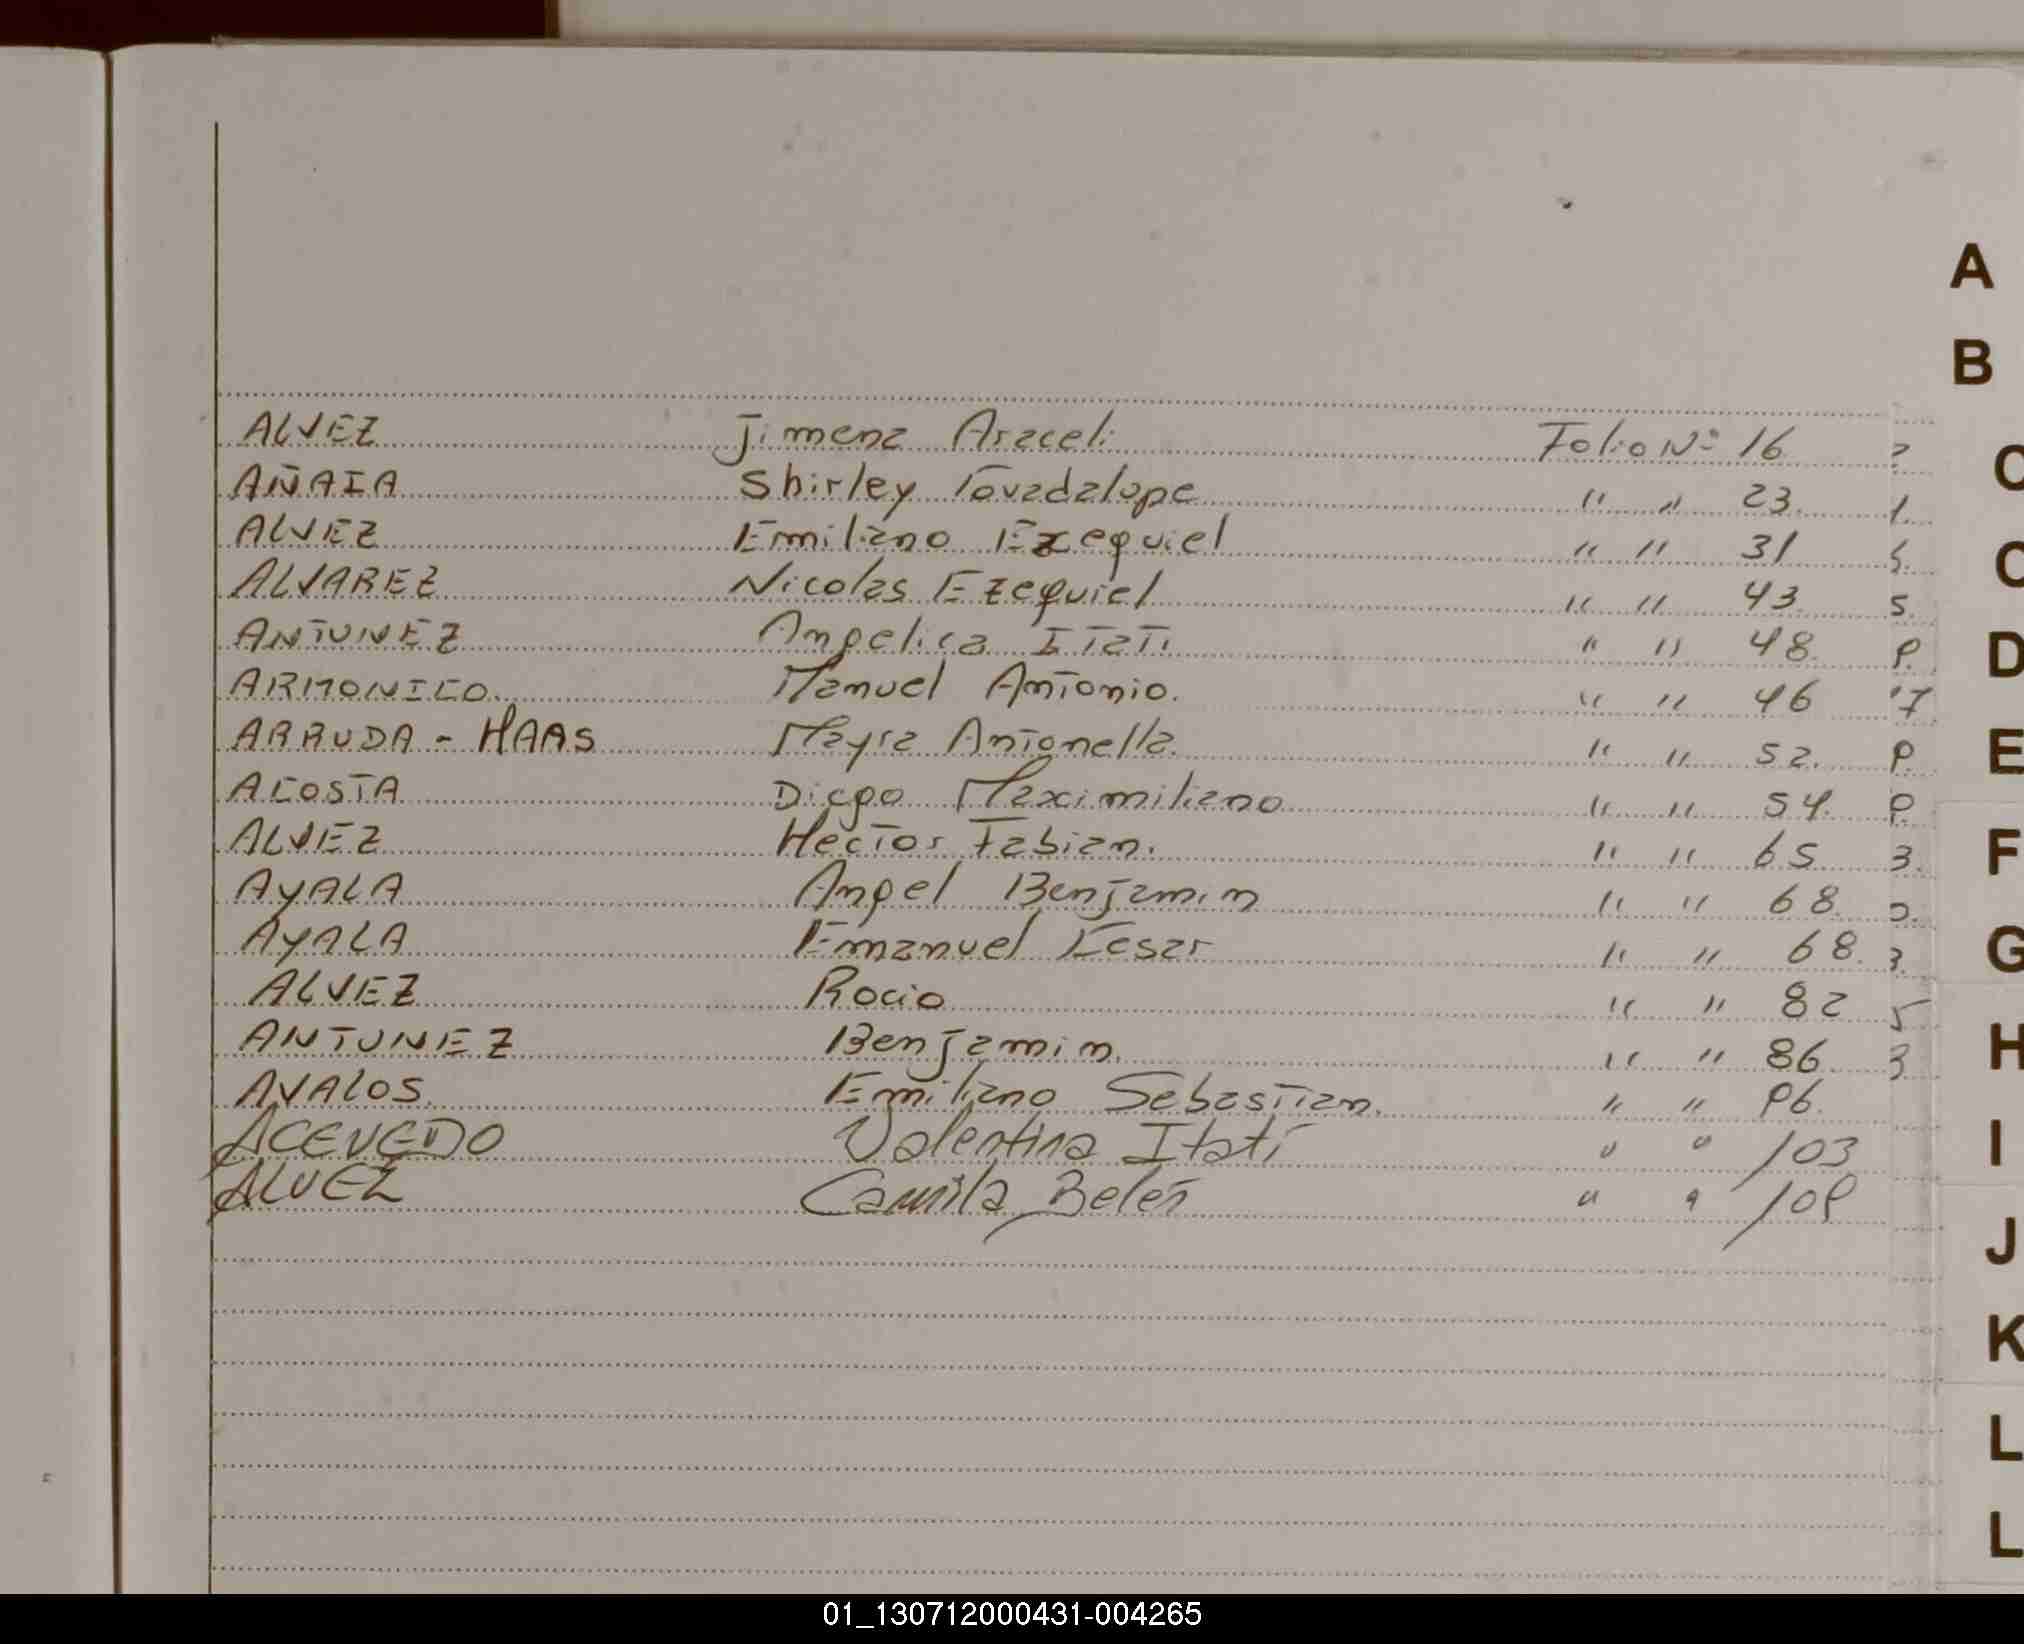 A
B
C
C
D
E
F
G
H
I
J
K
L
L
ALVEZ Jimena Araceli Folio Nº 16
AÑAIA Shirley " " 23.
ALVEZ Emiliano Ezequiel " " 31
ALVAREZ Nicolas Ezequiel " " 43
ANTUNEZ Angelica Itati " " 48
ARMONICO Manuel Antonio. " " 46
ARRUDA - HAAS Mayra Antonella. " " 52.
ACOSTA Diego Maximiliano " " 54.
ALVEZ Hector Fabian. " " 65
AyALA Angel Benjamin " " 68
AyALA Emanuel Cesar " " 68.
ALVEZ Rocio " " 82
ANTUNEZ Benjamin. " " 86
AVALOS. Emiliano Sebastian. " " 96.
ACEVEDO Valentina Itatí " " 103
ALVEZ Camila Belén " " 109
01_130712000431-004265